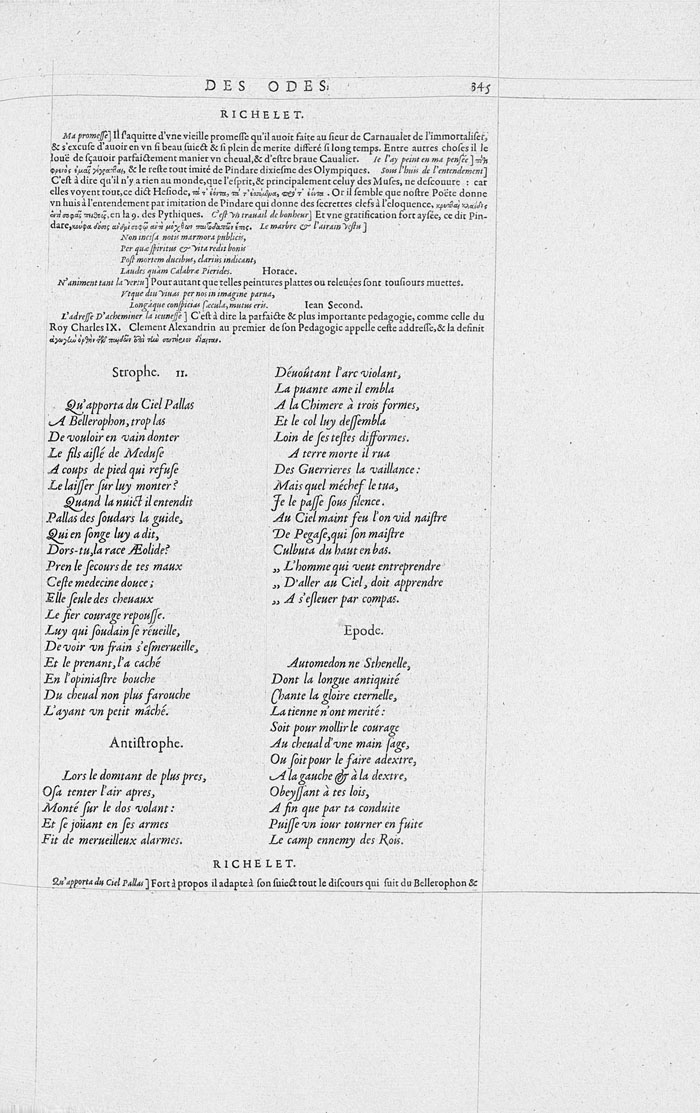 DES ODES. 345
RICHELET.
Ma promesse] Il s'aquitte d'vne vieille promesse qu'il auoit faite au sieur de Carnaualet de l'immortaliser,
& s'excuse d'auoir en vn si beau suiect & si plein de merite differé si long temps. Entre autres choses il le
louë de sçauoir parfaictement manier vn cheual, & d'estre braue Caualier. Ie l'ay peint en ma pensée]
& le reste tout imité de Pindare dixiesme des Olympiques. Sous l'huis de l'entendement]
C'est à dire qu'il n'y a rien au monde, que l'esprit, & principalement celuy des Muses, ne descouure : car
elles voyent tout, ce dict Hesiode, Or il semble que nostre Poëte donne
vn huis à l'entendement par imitation de Pindare qui donne des secrettes clefs à l'eloquence,
en la 9. des Pythiques. C'est vn trauail de bonheur] Et vne gratification fort aysée, ce dit Pin-
dare, Le marbre & l'airain vestu]
Non incisa notis marmora publicis,
Per quæ spiritus & vita redit bonis
Post mortem ducibus, clarius indicant,
Laudes quàm Calabræ Pierides. Horace.
N'animent tant la vertu] Pour autant que telles peintures plattes ou releuées sont tousiours muettes.
Vtque diu viuas per nos in imagine parua,
Longáque conspicias sæcula, mutus eris. Iean Second.
L'adresse D'acheminer la ieunesse] C'est à dire la parfaicte & plus importante pedagogie, comme celle du
Roy Charles IX. Clement Alexandrin au premier de son Pedagogic appelle ceste addresse, & la definit
Strophe. 11.
Qu'apporta du Ciel Pallas
A Bellerophon, trop las
De vouloir en vain donter
Le fils aislé de Meduse
A coups de pied qui refuse
Le laisser sur luy monter?
Quand la nuict il entendit
Pallas des soudars la guide,
Qui en songe luy a dit,
Dors-tu, la race Æolide?
Pren le secours de tes maux
Ceste medecine douce;
Elle seule des cheuaux
Le fier courage repousse.
Luy qui soudain se réueille,
De voir vn frain s'esmerueille,
Et le prenant, l'a caché
En l'opiniastre bouche
Du cheual non plus farouche
L'ayant vn petit mâché.
Antistrophe.
Lors le domtant de plus pres,
Osa tenter l'air apres,
Monté sur le dos volant :
Et se joüant en ses armes
Fit de merueilleux alarmes.
Déuoûtant l'arc violant,
La puante ame il embla
A la Chimere à trois formes,
Et le col luy dessembla
Loin de ses testes difformes.
A terre morte il rua
Des Guerrieres la vaillance :
Mais quel méchef le tua,
Je le passe sous silence.
Au Ciel maint feu l'on vid naistre
De Pegase, qui son maistre
Culbuta du haut en bas.
„ L'homme qui veut entreprendre
„ D'aller au Ciel, doit apprendre
„ A s'esleuer par compas.
Epode.
Automedon ne Sthenelle,
Dont la longue antiquité
Chante la gloire eternelle,
La tienne n'ont merité :
Soit pour mollir le courage
Au cheual d'vne main sage,
Ou soit pour le faire adextre,
A la gauche & à la dextre,
Obeyssant à tes lois,
A fin que par ta conduite
Puisse vn iour tourner en fuite
Le camp ennemy des Rois.
RICHELET.
Qu'apporta du Ciel Pallas] Fort à propos il adapte à son suiect tout le discours qui suit du Bellerophon &